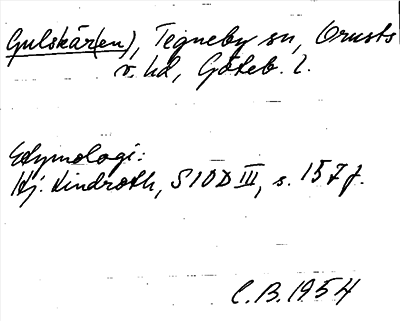 Gulskär(en), Tegneby sn, Orusts
v. hd, Göteb. l.
Etymologi:
Hj. Lindroth, SIOD III, s. 157 f.
C.B. 1954